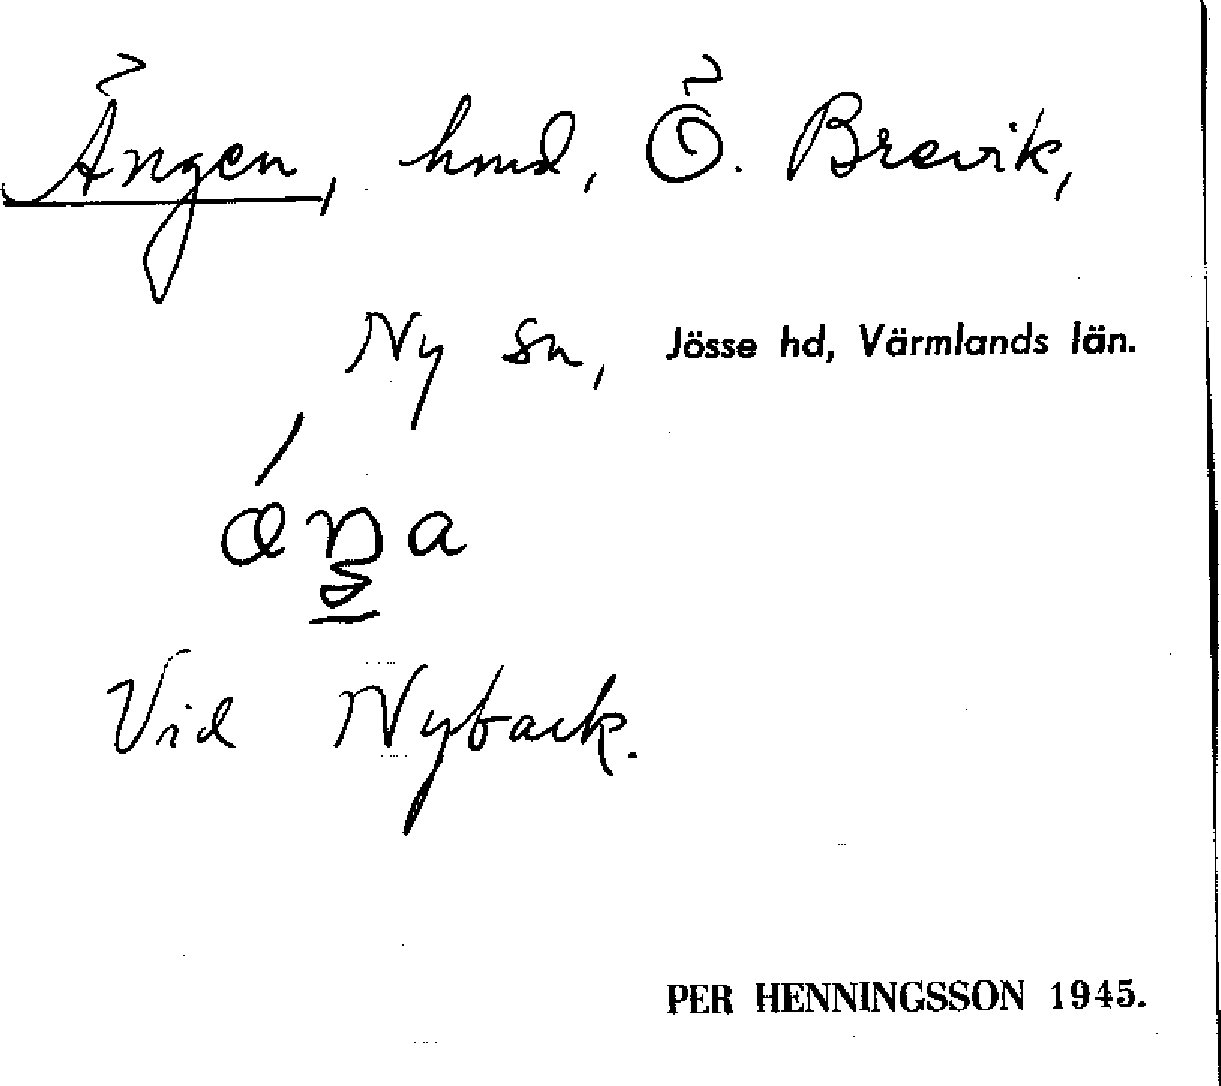 Ängen, hmd, Ö. Brevik,
Ny sn, Jösse hd, Värmlands län.
Vid Nyback.
PER HENNINGSSON 1945.